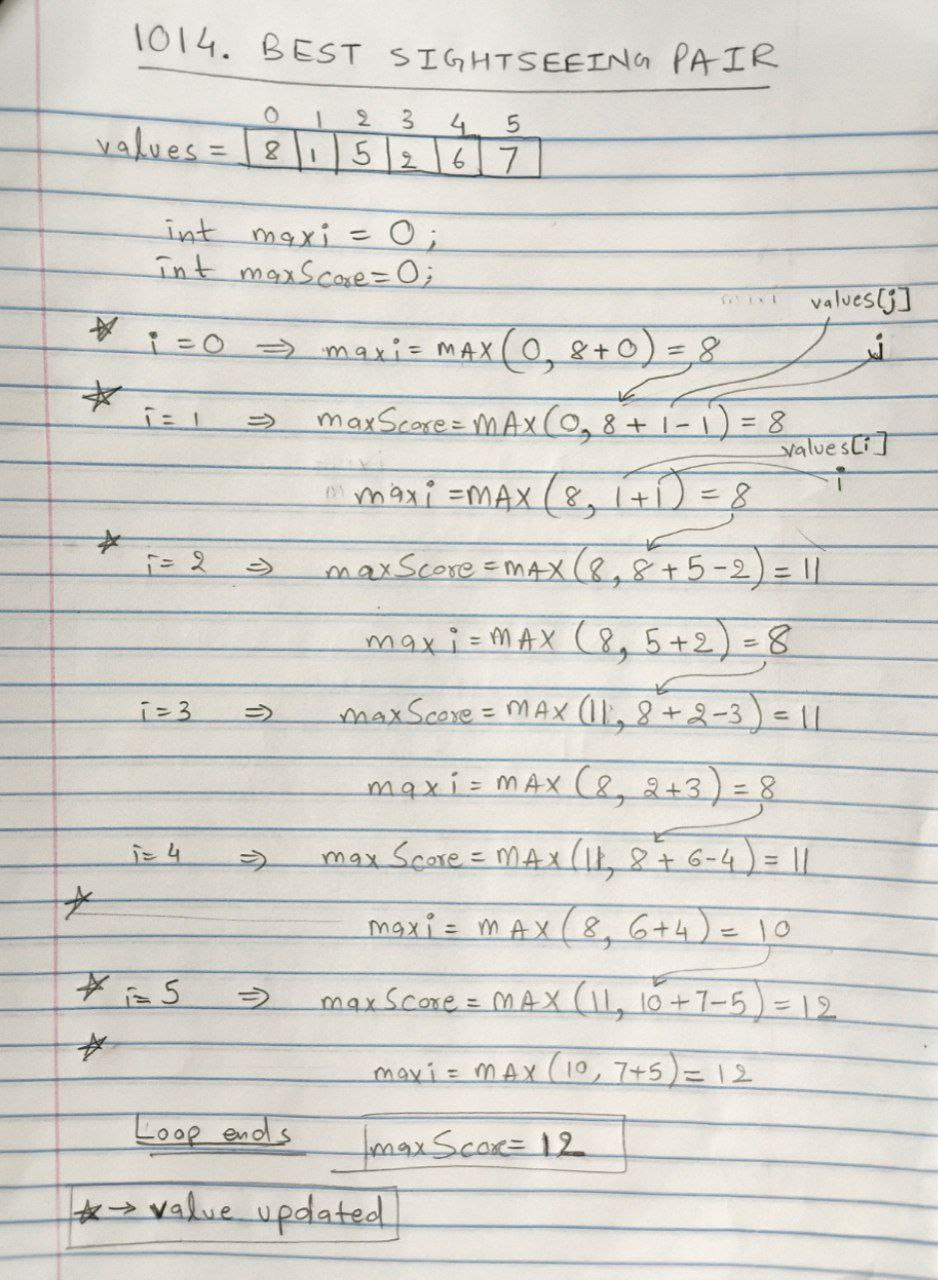 1014. BEST SIGHTSEEING PAIR
0 1 2 3 4 5
values = 8 1 5 2 6 7
int maxi = 0;
int maxScore=0;
values[j]
☆ i=0 ⇒ maxi = MAX(0, 8+0) = 8 j
☆ i=1 ⇒ maxScore = MAX(0, 8+1-1) = 8
values[i]
maxi = MAX(8, 1+1) = 8 i
☆ i=2 ⇒ maxScore = MAX(8, 8+5-2) = 11
maxi = MAX(8, 5+2) = 8
i=3 ⇒ maxScore = MAX(11, 8+2-3) = 11
maxi = MAX(8, 2+3) = 8
i=4 ⇒ maxScore = MAX(11, 8+6-4) = 11
☆ maxi = MAX(8, 6+4) = 10
☆ i=5 ⇒ maxScore = MAX(11, 10+7-5) = 12
☆ maxi = MAX(10, 7+5) = 12
Loop ends maxScore= 12
☆ → value updated